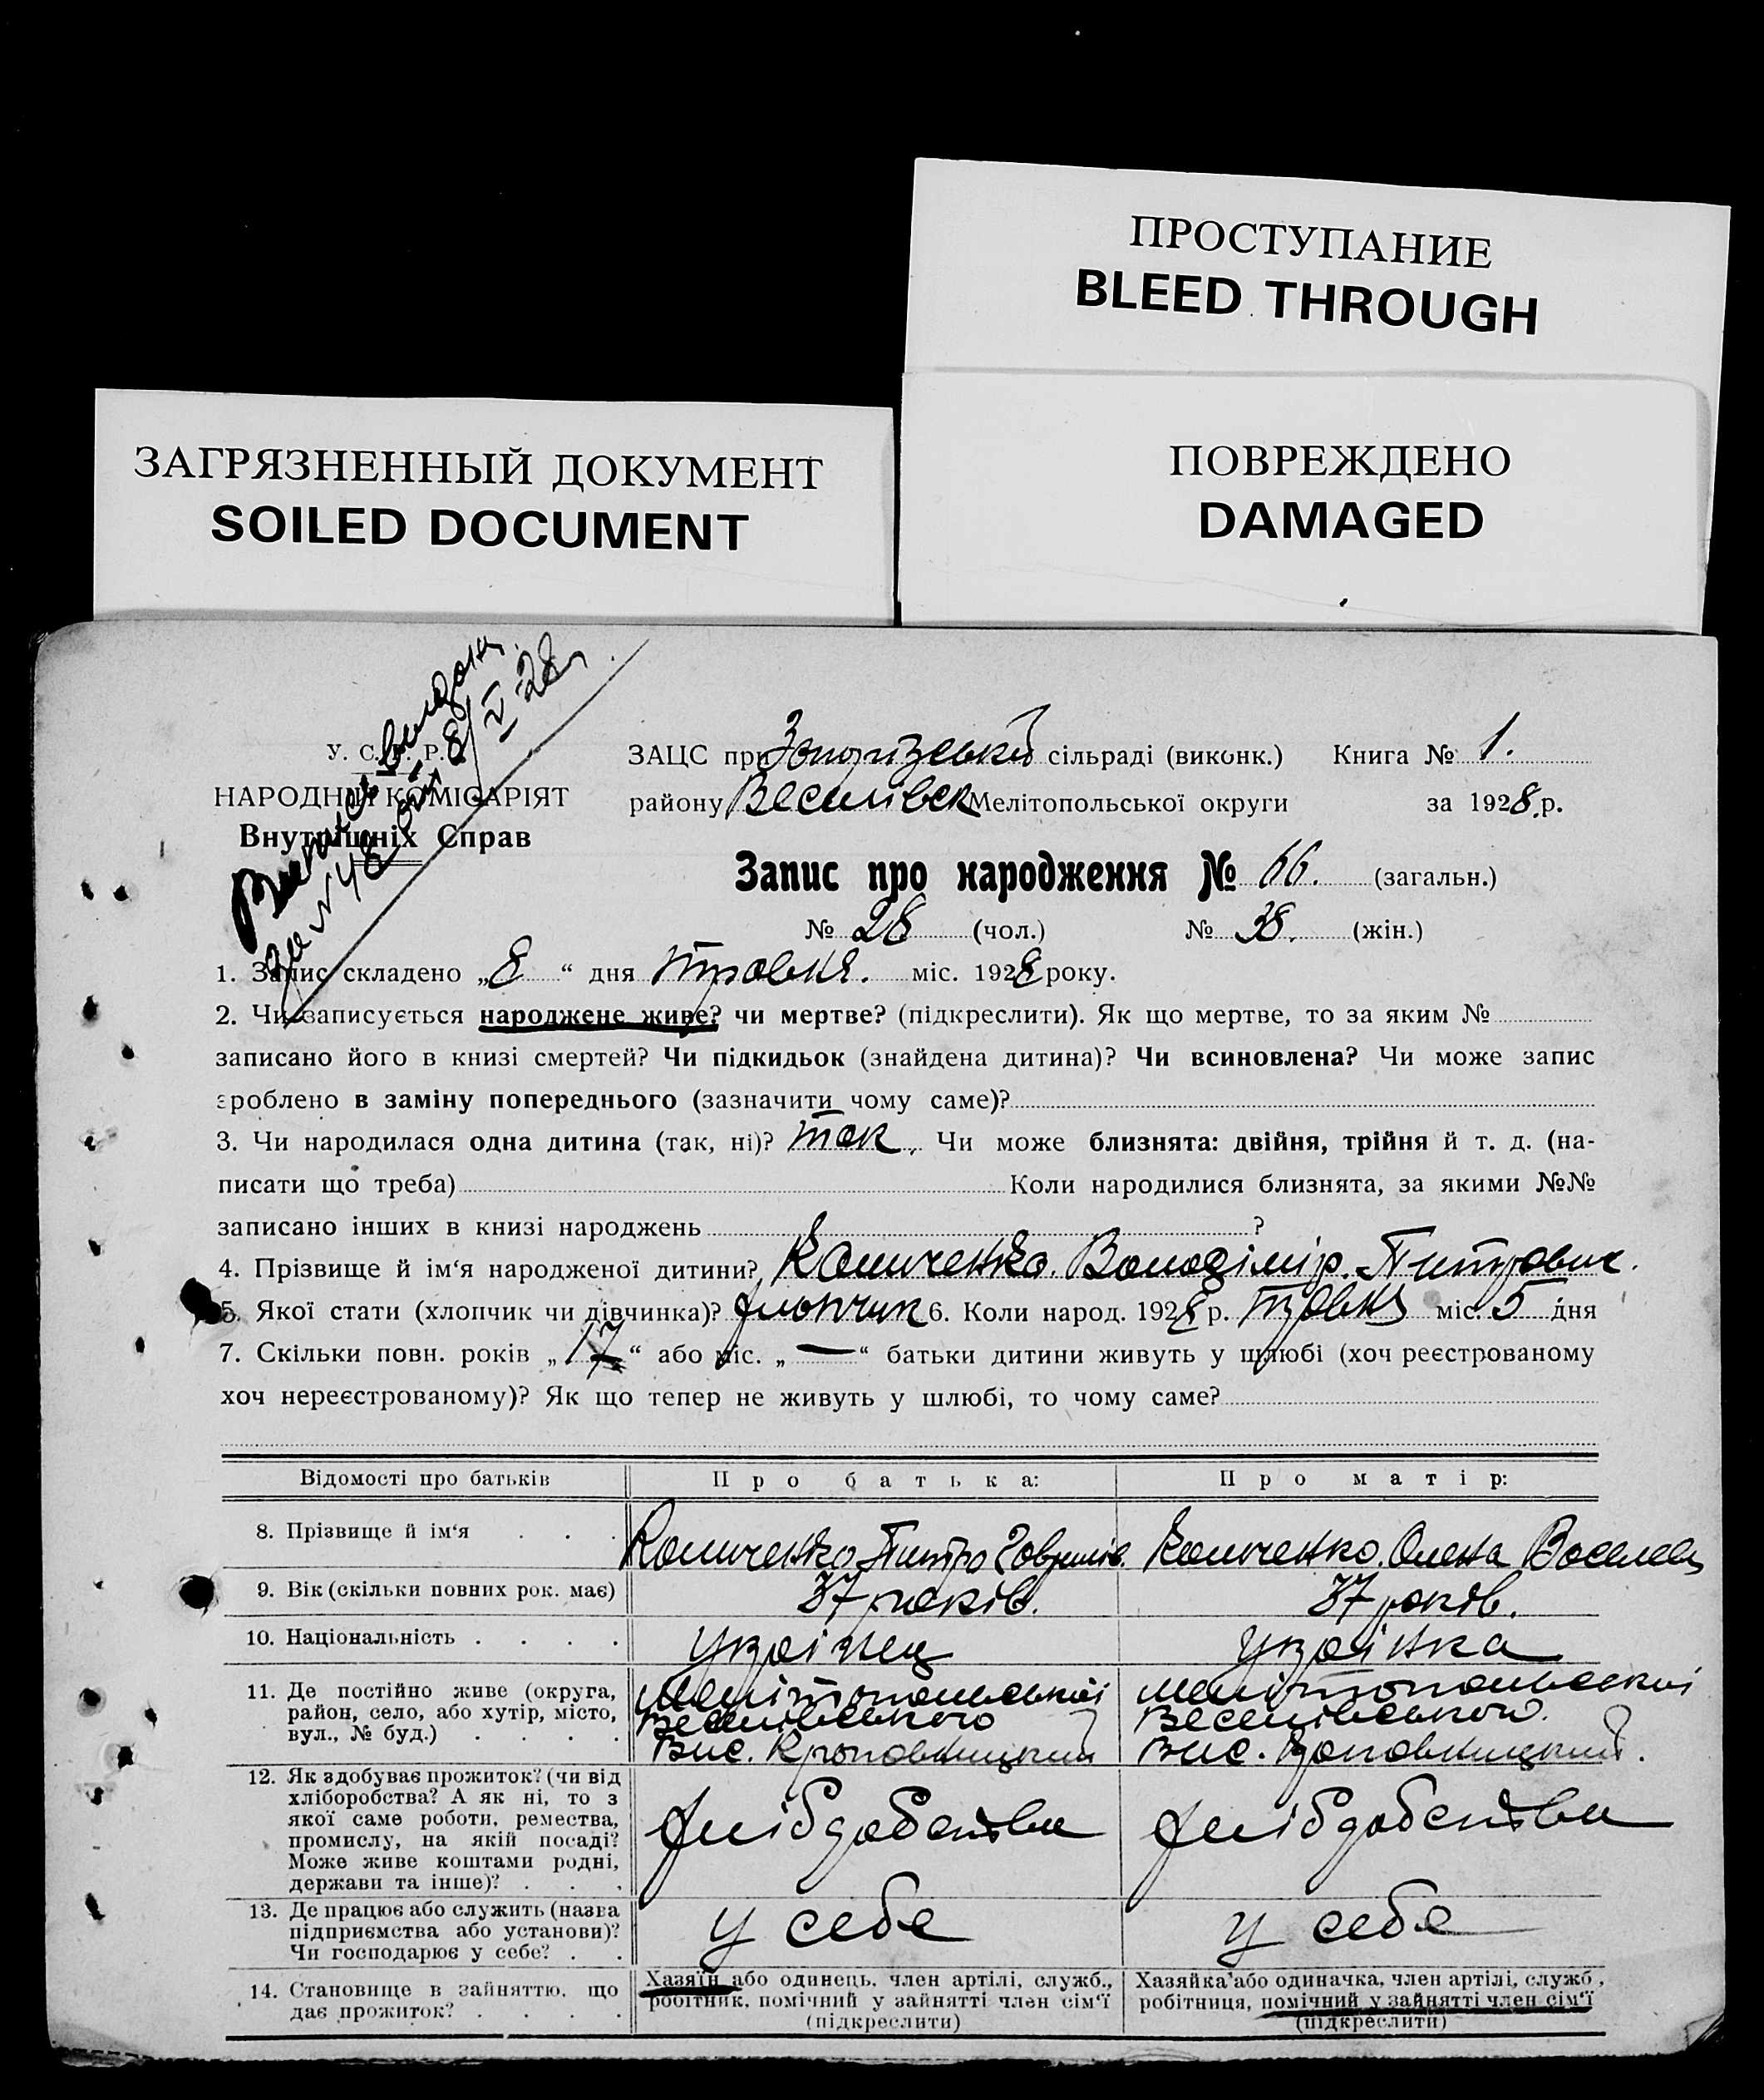 ПРОСТУПАНИЕ
BLEED THROUGH
ЗАГРЯЗНЕННЫЙ ДОКУМЕНТ
SOILED DOCUMENT
ПОВРЕЖДЕНО
DAMAGED
за № 48 від 8/V 28
У. С. Р. Р.
НАРОДНИЙ КОМІСАРІЯТ
Внутрішніх Справ
ЗАЦС при сільраді (виконк.) Книга № 1.
району Веселівськ Мелітопольської округи за 1928 р.
Запис про народження № 66. (загальн.)
№ 28 (чол.) № 38. (жін.)
1. Запис складено „8“ дня травня. міс. 1928 року.
2. Чи записується народжене живе? чи мертве? (підкреслити). Як що мертве, то за яким №
записано його в книзі смертей? Чи підкидьок (знайдена дитина)? Чи всиновлена? Чи може запис
зроблено в заміну попереднього (зазначити чому саме)?
3. Чи народилася одна дитина (так, ні)? так. Чи може близнята: двійня, трійня й т. д. (на-
писати що треба) Коли народилися близнята, за якими №№
записано інших в книзі народжень ?
4. Прізвище й ім‘я народженої дитини? Володімір. Питрович.
5. Якої стати (хлопчик чи дівчинка)? хлопчик 6. Коли народ. 1928 р. травня міс. 5 дня
7. Скільки повн. років „17“ або міс. „—“ батьки дитини живуть у шлюбі (хоч реєстрованому
хоч нереєстрованому)? Як що тепер не живуть у шлюбі, то чому саме?
Відомості про батьків Про батька: Про матір:
8. Прізвище й ім‘я . . . Питро Гаврилов. Олена
9. Вік (скільки повних рок. має) 37 років. 37 років.
10. Національність . . . . українец українка
11. Де постійно живе (округа,
район, село, або хутір, місто,
вул., № буд.) . . . .
Мелітопольської
Веселівського
Вис. Кроповницкий
Мелітопольської
Веселівського.
Вис. Кроповницкий.
12. Як здобуває прожиток? (чи від
хліборобства? А як ні, то з
якої саме роботи, ремества,
промислу, на якій посаді?
Може живе коштами родні,
держави та інше)? . . .
13. Де працює або служить (назва
підприємства або установи)?
Чи господарює у себе? . .
у себе
у себе
14. Становище в зайняттю, що
дає прожиток? . . . .
Хазяїн або одинець, член артілі, служб.,
робітник, помічний у зайнятті член сім‘ї
(підкреслити)
Хазяйка або одиначка, член артілі, служб.,
робітниця, помічний у зайнятті член сім‘ї
(підкреслити)